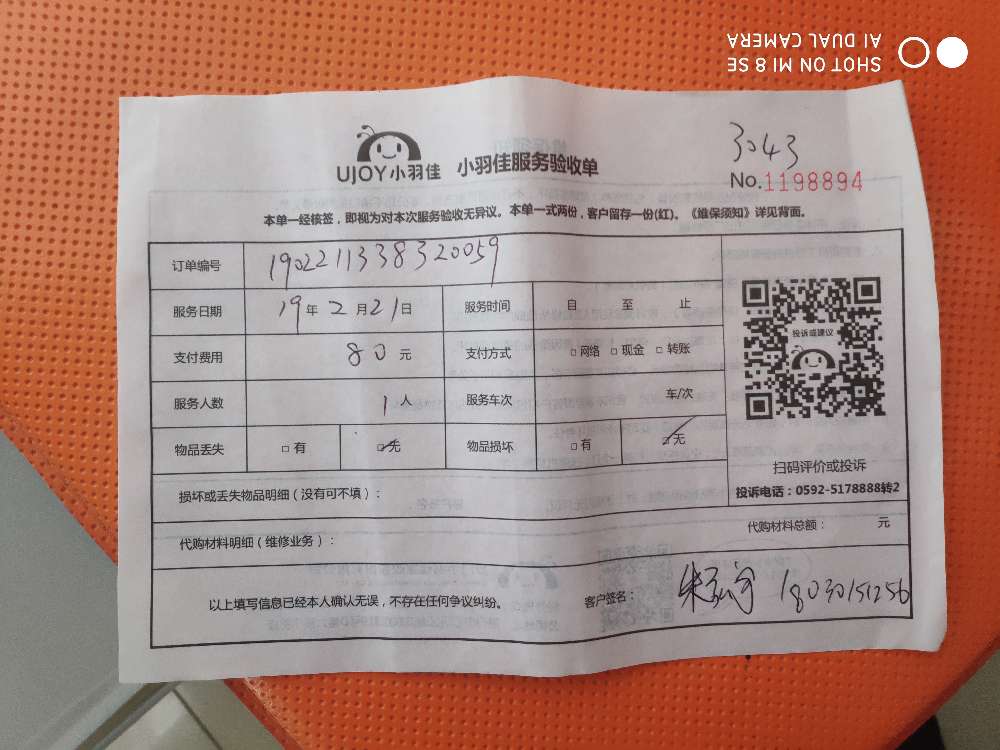 SHOT ON MI 8 SE
AI DUAL CAMERA
3043
UJOY小羽佳 小羽佳服务验收单
No.1198894
本单一经核签，即视为对本次服务验收无异议。本单一式两份，客户留存一份(红)。《维保须知》详见背面。
订单编号 1902211338320059
服务日期 19年2月21日 服务时间 自 至 止
支付费用 80元 支付方式 □网络 □现金 □转账
服务人数 1人 服务车次 车/次
物品丢失 □有 □无 物品损坏 □有 □无
投诉或建议
扫码评价或投诉
投诉电话：0592-5178888转2
损坏或丢失物品明细（没有可不填）：
代购材料明细（维修业务）： 代购材料总额： 元
以上填写信息已经本人确认无误，不存在任何争议纠纷。 客户签名： 朱 18030151256